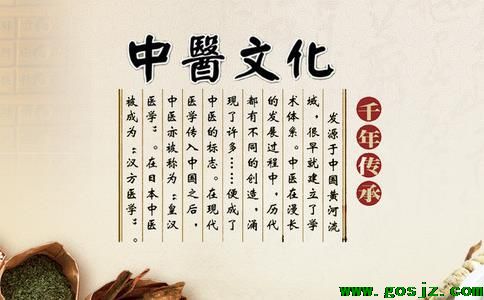 中醫文化
千年传承
发源于中国黄河流
域，很早就建立了学
术体系。中医在漫长
的发展过程中，历代
都有不同的创造，涌
现了许多……便成了
中医的标志。在现代
医学传入中国之后，
中医亦被称为“皇汉
医学”。在日本中医
被成为“汉方医学”。
www.gosjz.com